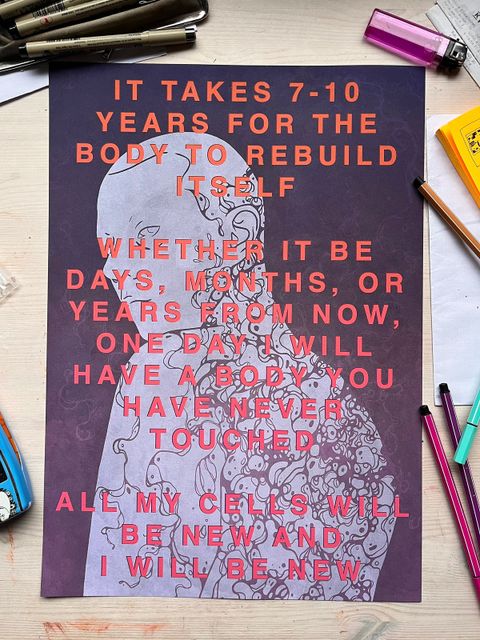 IT TAKES 7-10
YEARS FOR THE
BODY TO REBUILD
ITSELF
WHETHER IT BE
DAYS, MONTHS, OR
YEARS FROM NOW,
ONE DAY I WILL
HAVE A BODY YOU
HAVE NEVER
TOUCHED
ALL MY CELLS WILL
BE NEW AND
I WILL BE NEW